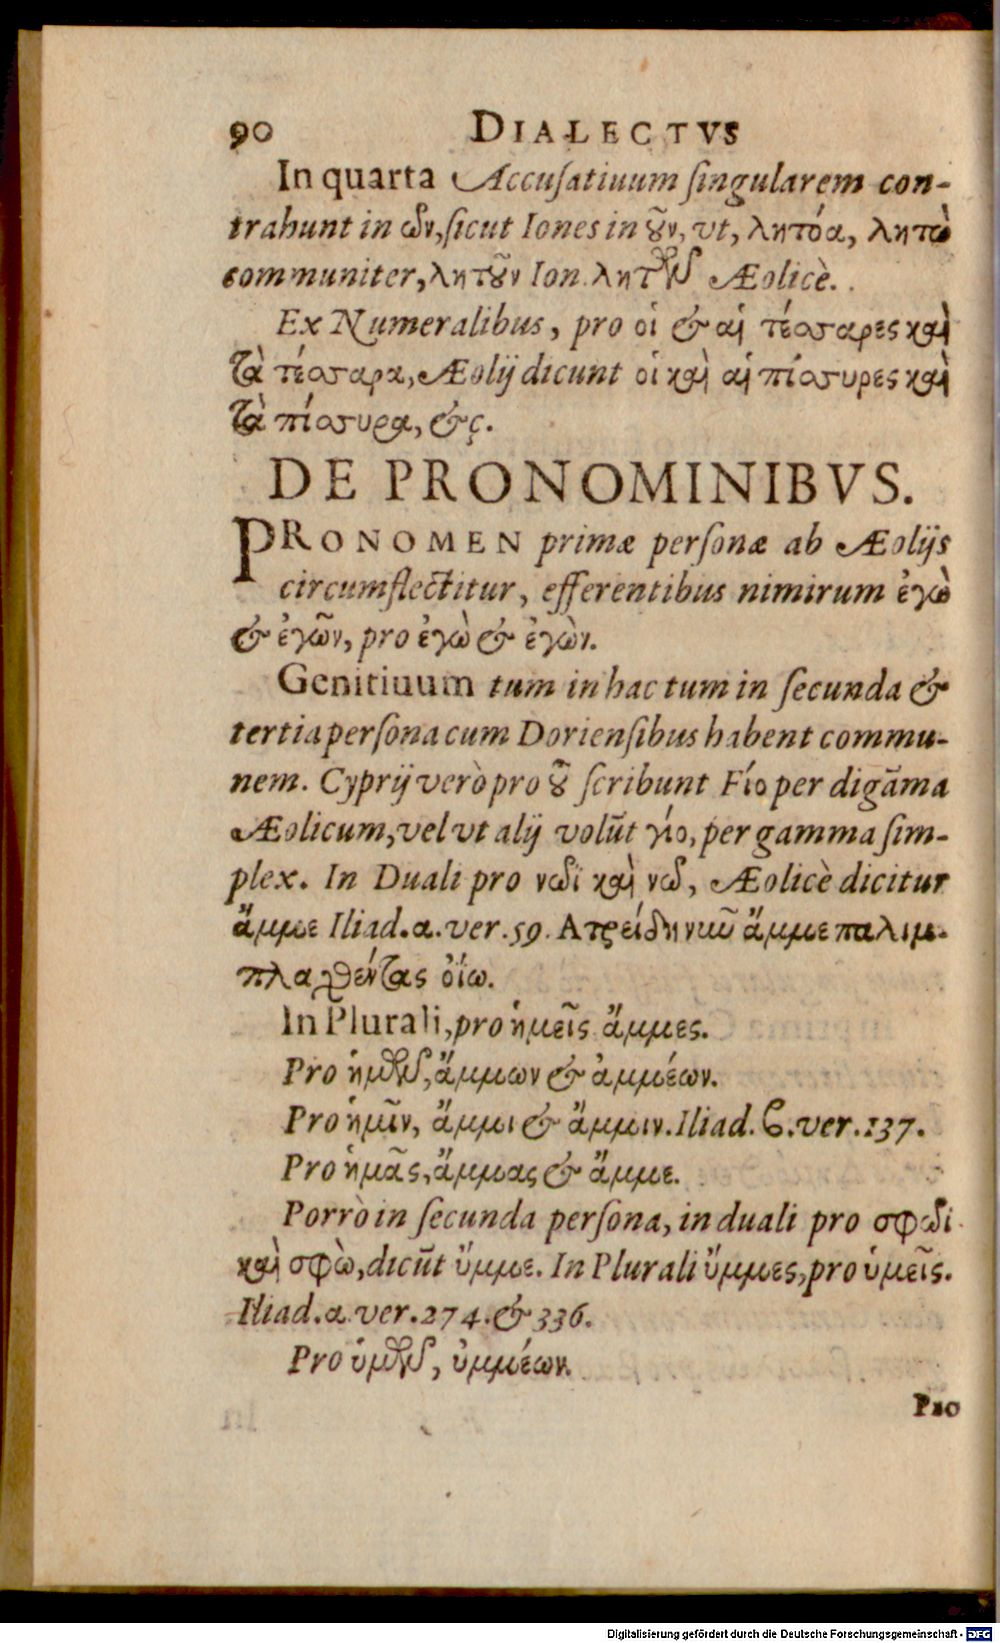 90 DIALECTVS
In quarta Accuſatiuum ſingularem con-
trahunt in ων, ſicut Iones in οῦν, vt, λητόα, λητὼ
communiter, λητοῦν Ion. λητῶν Æolicè.
Ex Numeralibus, pro οἱ & αἱ τέσσαρες καὶ
τὰ τέσσαρα, Æolij dicunt οἱ καὶ αἱ πίσσυρες καὶ
τὰ πίσσυρα, &ς.
DE PRONOMINIBVS.
PRONOMEN primæ perſonæ ab Æolijs
circumflectitur, efferentibus nimirum ἐγῶ
& ἐγῶν, pro ἐγὼ & ἐγὼν.
Genitiuum tum in hac tum in ſecunda &
tertia perſona cum Dorienſibus habent commu-
nem. Cyprij verò pro οὗ ſcribunt Fίο per digāma
Æolicum, vel vt alij volūt γίο, per gamma ſim-
plex. In Duali pro νωῒ καὶ νὼ, Æolicè dicitur
ἄμμε Iliad. α. ver. 59. Ατρείδη νῦν ἄμμε παλιμ-
πλαχθέντας ὀΐω.
In Plurali, pro ἡμεῖς ἄμμες.
Pro ἡμῶν, ἄμμων & ἀμμέων.
Pro ἡμῖν, ἄμμι & ἄμμιν. Iliad. ϐ. ver. 137.
Pro ἡμᾶς, ἄμμας & ἄμμε.
Porrò in ſecunda perſona, in duali pro σφωῒ
καὶ σφὼ, dicūt ὔμμε. In Plurali ὔμμες, pro ὑμεῖς.
Iliad. α. ver. 274. & 336.
Pro ὑμῶν, ὑμμέων.
Pro
Digitalisierung gefördert durch die Deutsche Forschungsgemeinschaft - DFG